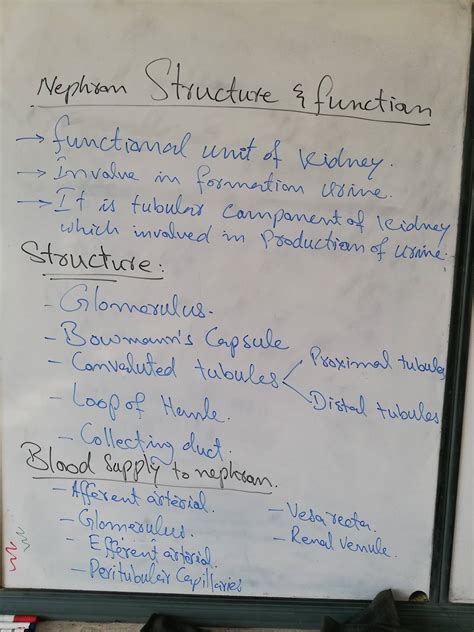 Nephron Structure & function
→ functional unit of kidney.
→ Involve in formation urine.
→ It is tubular component of kidney
which involved in Production of urine.
Structure:
- Glomerulus.
- Bowmann's Capsule
- Convoluted tubules < Proximal tubules
Distal tubules
- Loop of Henle.
- Collecting duct.
Blood Supply to nephron.
- Afferent arterial.
- Glomerulus.
- Efferent arterial.
- Peritubular Capillaries
- Vesa recta.
- Renal venule.